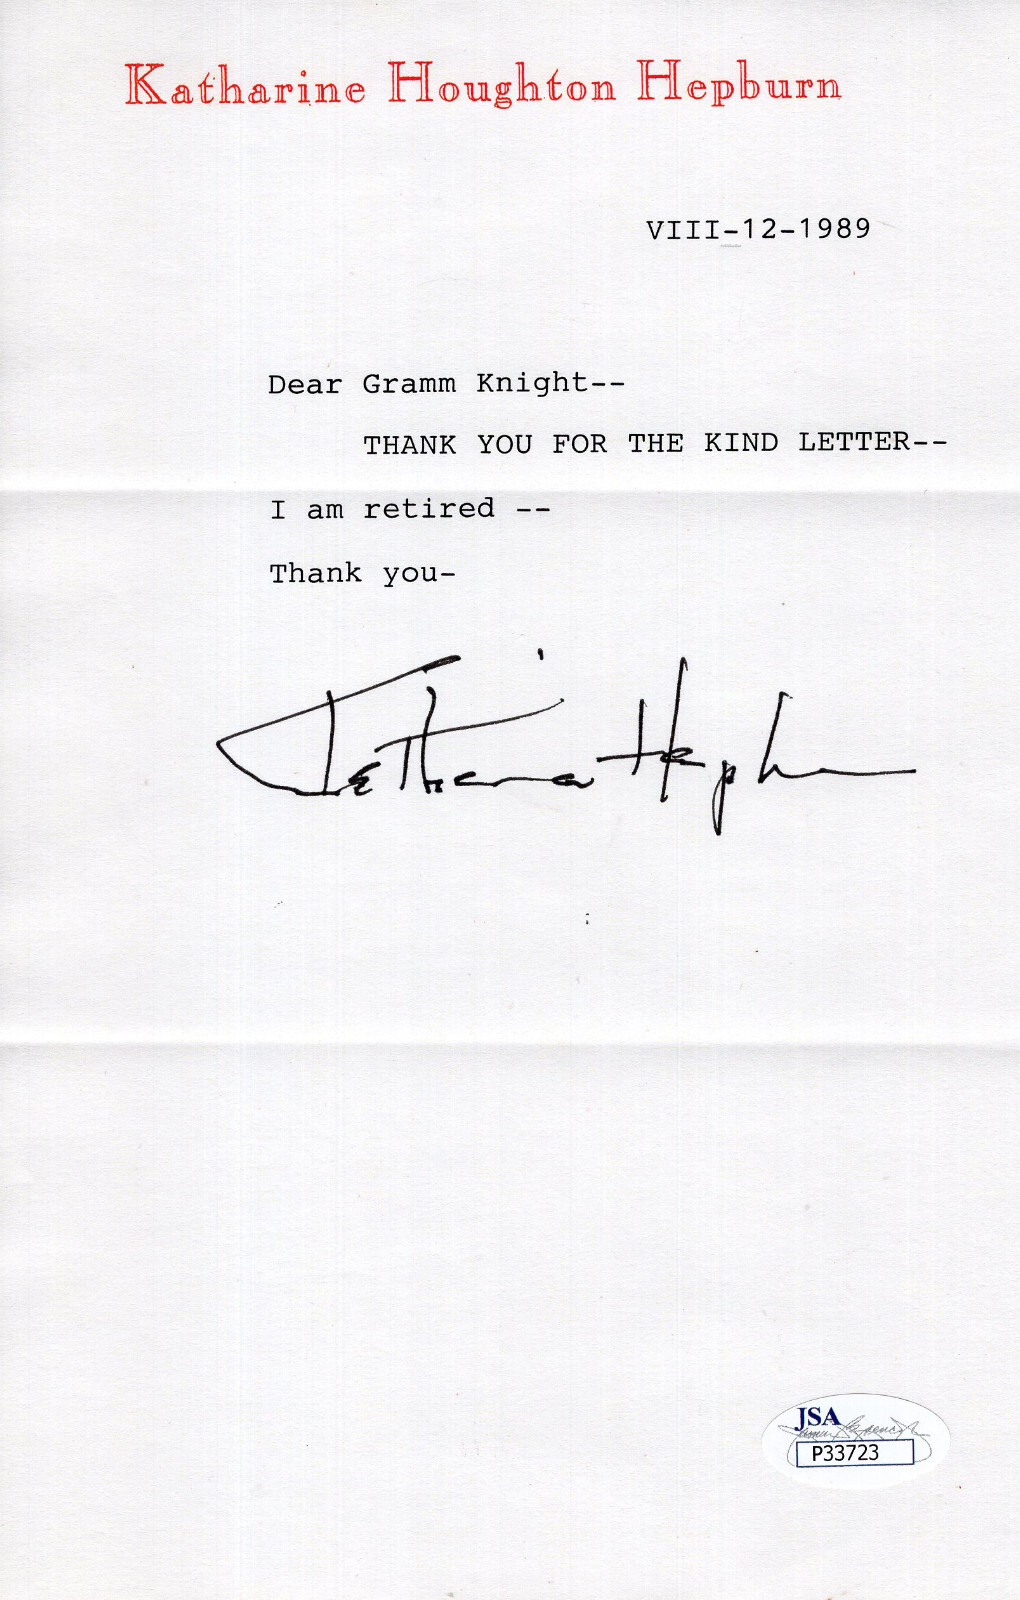 Katharine Houghton Hepburn
VIII-12-1989
Dear Gramm Knight--
THANK YOU FOR THE KIND LETTER--
I am retired --
Thank you-
Katharine Hepburn
JSA
P33723